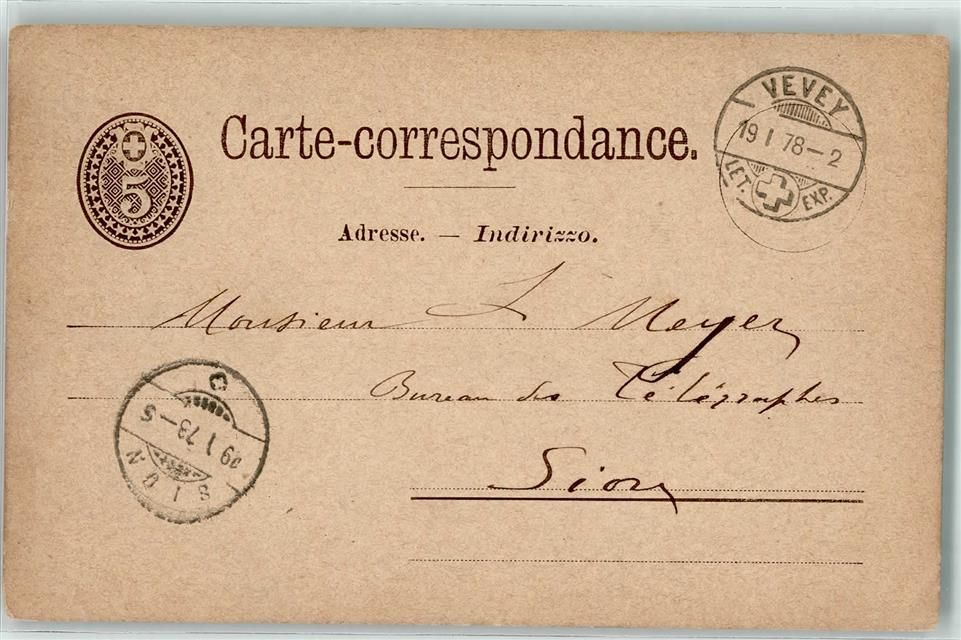 5
Carte-correspondance.
VEVEY
19 I 78 – 2
LET. EXP.
Adresse. — Indirizzo.
Monsieur L Meyer
Bureau des Télégraphes
Sion
SION
19 I 78 – 5